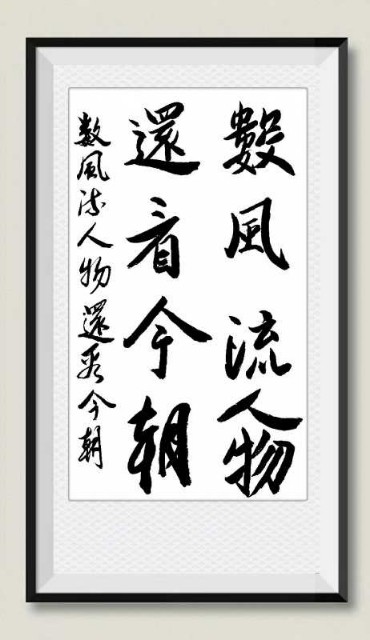 數風流人物
還看今朝
數風流人物還看今朝